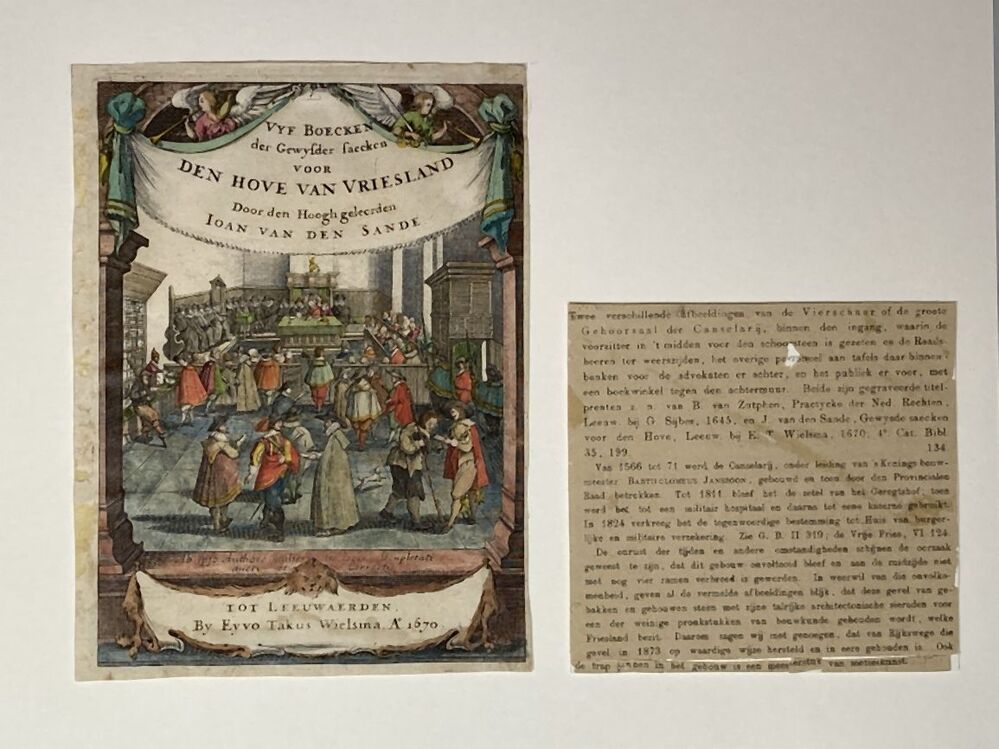 VYF BOECKEN
der Gewysder saecken
VOOR
DEN HOVE VAN VRIESLAND
Door den Hoogh geleerden
IOAN VAN DEN SANDE
TOT LEEUWAERDEN,
By Eyvo Takus Wielsma, Aº 1670.
Twee verschillende afbeeldingen van de Vierschaar of de groote
Gehoorsaal der Canselarij, binnen den ingang, waarin de
voorzitter in 't midden voor den schoorsteen is gezeten en de Raads-
heeren ter weerszijden, het overige personeel aan tafels daar binnen
banken voor de advokaten er achter, en het publiek er voor, met
een boekwinkel tegen den achtermuur. Beide zijn gegraveerde titel-
prenten z. n. van B. van Zutphen, Practycke der Ned. Rechten,
Leeuw. bij G. Sijbes, 1645, en J. van den Sande, Gewysde saecken
voor den Hove, Leeuw. bij E. T. Wielsma, 1670. 4º. Cat. Bibl.
35, 199. 134.
Van 1566 tot 71 werd de Canselarij, onder leiding van 's Konings bouw-
meester BARTHOLOMEUS JANSZOON, gebouwd en toen door den Provincialen
Raad betrokken. Tot 1811 bleef het de zetel van het Geregtshof; toen
werd het tot een militair hospitaal en daarna tot eene kazerne gebruikt.
In 1824 verkreeg het de tegenwoordige bestemming tot Huis van burger-
lijke en militaire verzekering. Zie G. B. II 319; de Vrije Fries, VI 124.
De onrust der tijden en andere omstandigheden schijnen de oorzaak
geweest te zijn, dat dit gebouw onvoltooid bleef en aan de zuidzijde niet
met nog vier ramen verbreed is geworden. In weerwil van die onvolko-
menheid, geven al de vermelde afbeeldingen blijk, dat deze gevel van ge-
bakken en gehouwen steen met zijne talrijke architectonische sieraden voor
een der weinige pronkstukken van bouwkunde gehouden wordt, welke
Friesland bezit. Daarom zagen wij met genoegen, dat van Rijkswege die
gevel in 1873 op waardige wijze hersteld en in eere gehouden is. Ook
de trap binnen in het gebouw is een meesterstuk van metselkunst.